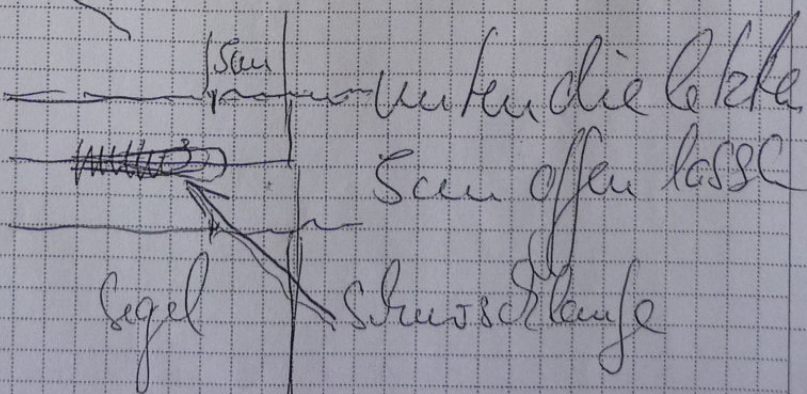 5cm
unten die letzte
5cm offen lassen
Segel
Schnurschlaufe